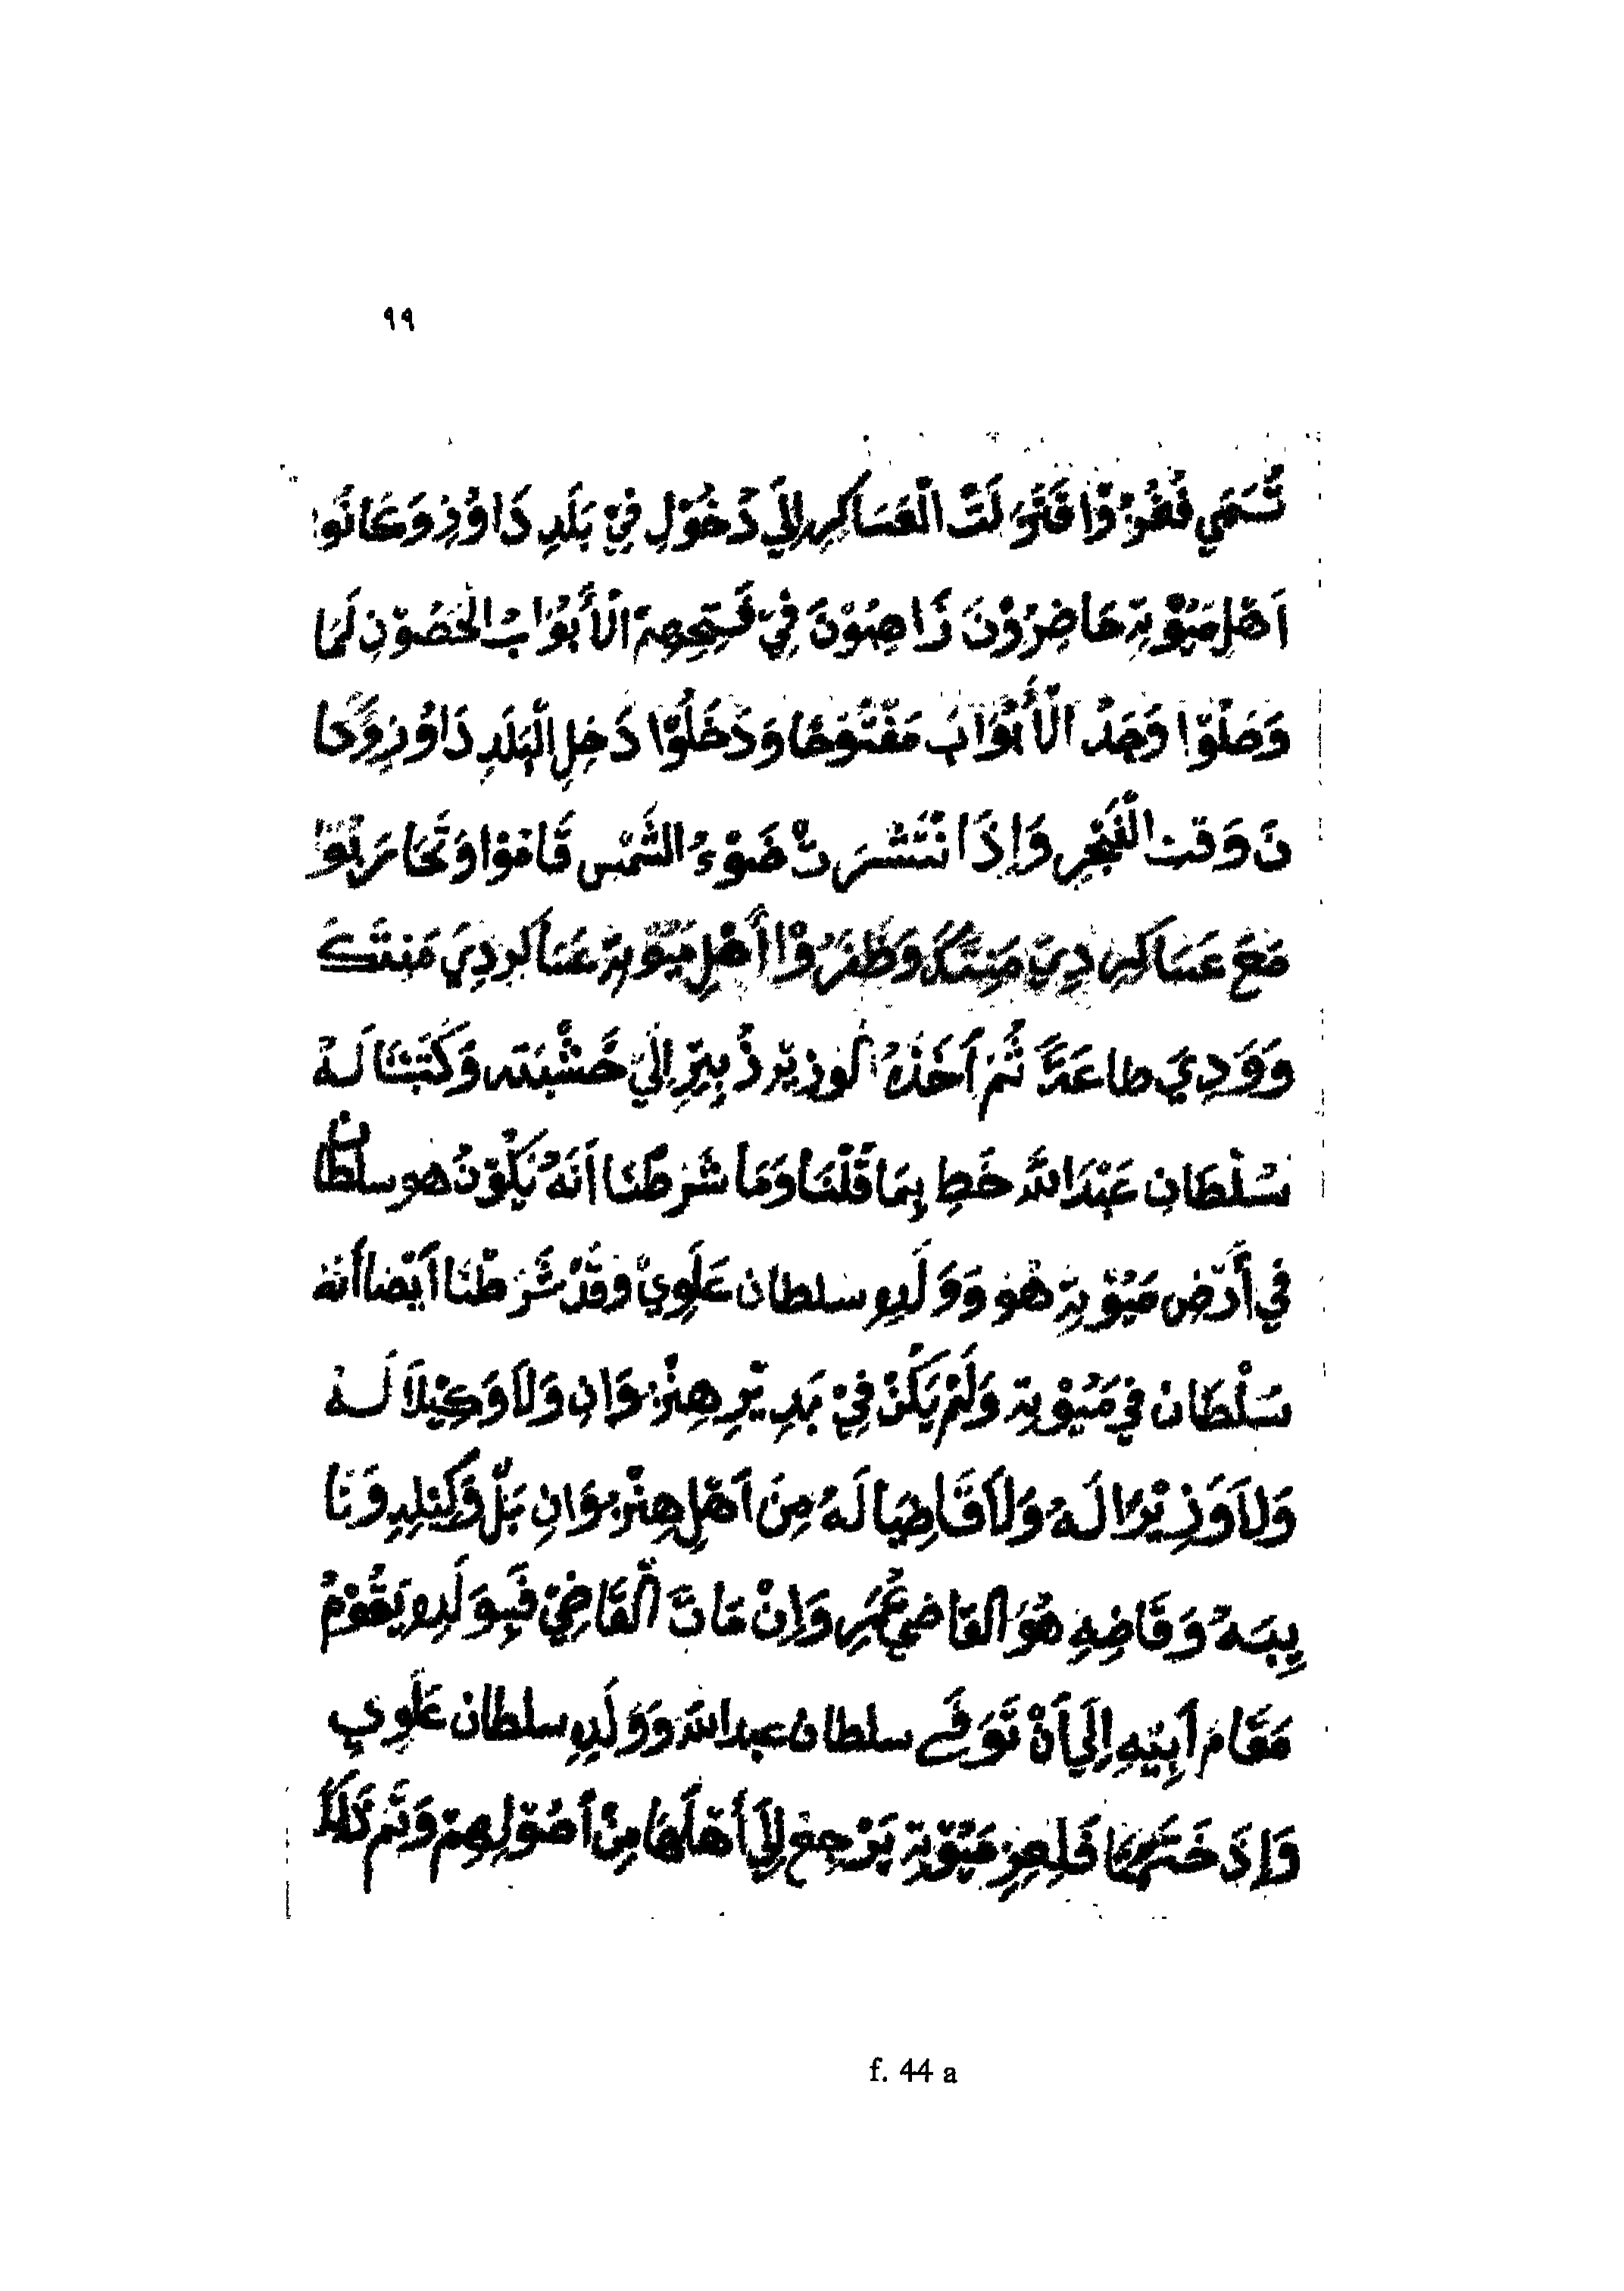 ٩٩
تُسَمَّي فُفُرُوْا فَتَوَلَتْ الْعَسَاكِرِ إِلَي دُخُوْلِ فِيْ بَلَدِ دَاوُزِ وَكَانُوا
اَهْلِ مَيُوْتِهْ حَاضِرُوْنَ رَاصِوْنَ فِيْ فَتِحِهِمْ الْأَبْوَابُ الْحُصُوْنِ لَمَّا
وَصَلُوْا وَجَدُ الْأَبْوَابَ مَفْتُوْحًا وَدَخَلُوْا دَخِلِ الْبَلَدِ دَاوُزِ وَكَا
نَ وَقت الْفَجْرِ وَإِذَا نْتَشَرَتْ ضَوْءُ الشَّمْسِ قَامُوْا وَتَحَارَبُوْا
مَعَ عَسَاكِرِ دِيَ مَنِتْكَ وَظَفَرُوْا أَهْلِ مَيُوْتِهْ عَسَاكِرِ دِيَ مَنِتْكَ
وَوَدِيَ طاعَةً ثُمَّ اَخَذَهُ الْوزِيْر زُبِيْرِ إِلَيْ خَشْبَته وَكَتَبْنَا لَهُ
سُلْطَانِ عَبْدَاللَّه خَطِ بِمَا قُلْنَا وَمَا شَرَطْنَا اَنَّهُ يَكُوْنُ هو سلطان
فِي أَرْضِ مَيُوْتِهْ هُوَ وَوَلَدِهِ سلطان عَلَوِيْ وَقَدْ شَرَطْنَا أَيْضا أنهُ
سَلْطَان فِي مَيُوْتِهْ وَلَمْ يَكُنْ فِيْ يَدِيْرِ هِنْزُوَانِ وَلَا وَكِيْلًا لَهُ
وَلَا وَزِيْرًا لَهُ وَلَا قَاضِيًا لَهُ مِنَ اَهْلِ هِنْزُوَانِ بَلْ وَكِيْلِهِ وَنَا
يِبَهُ وَقَاضِهِ هُوَ الْقَاضي عُمَرِ وَإِنْ مَاتَ الْقَاضِيْ فَبِوَلَدِهِ يَقُوْمُ
مَقَامَ أَبِيْهِ إِلَيَ أَنْ تَوَفَّي سلطان عبدالله وَوَلَدِهِ سلطان عَلَوِي
وَإِذَ فَلِعِزِ مَيُوْتِهْ يَرْجِعْ إِلَيَ أَهْلَهَا مِنْ أُصُوْلِهِمْ وَتَم
f. 44 a